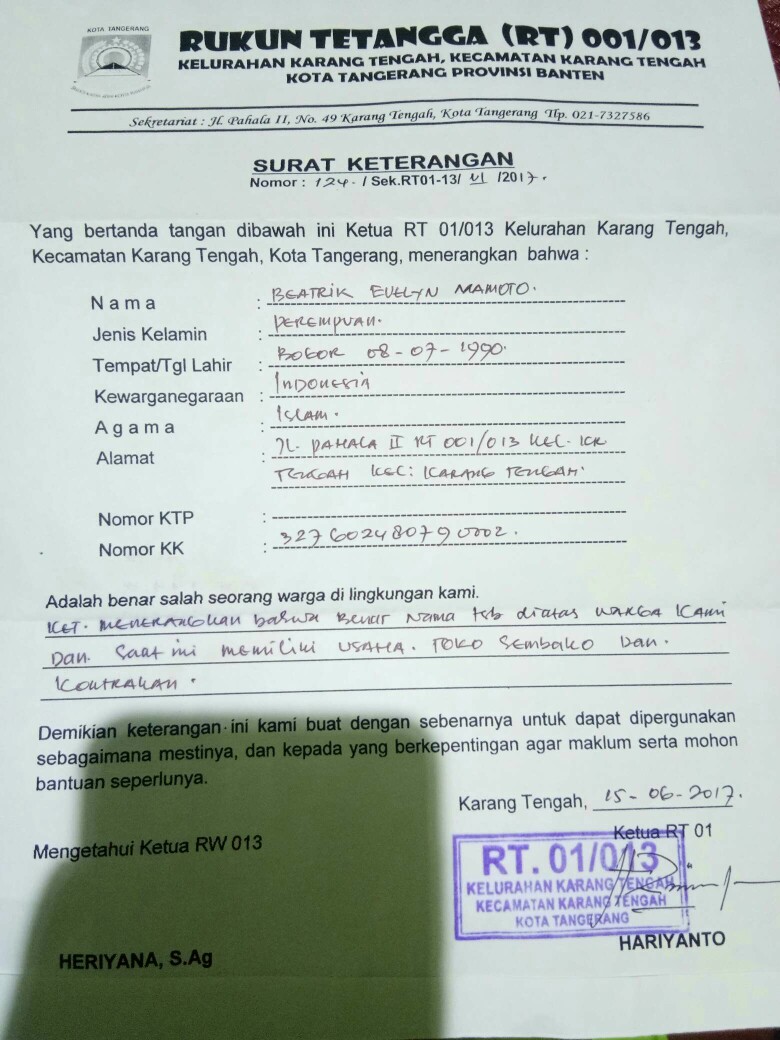 KOTA TANGERANG
RUKUN TETANGGA (RT) 001/013
KELURAHAN KARANG TENGAH, KECAMATAN KARANG TENGAH
KOTA TANGERANG PROVINSI BANTEN
Sekretariat : Jl. Pahala II, No. 49 Karang Tengah, Kota Tangerang Tlp. 021-7327586
SURAT KETERANGAN
Nomor : 124. / Sek.RT01-13/ VI /2017.
Yang bertanda tangan dibawah ini Ketua RT 01/013 Kelurahan Karang Tengah,
Kecamatan Karang Tengah, Kota Tangerang, menerangkan bahwa :
Nama : BEATRIK EVELYN MAMOTO.
Jenis Kelamin : PEREMPUAN.
Tempat/Tgl Lahir : BOGOR 08-07-1990.
Kewarganegaraan : INDONESIA
Agama : ISLAM.
Alamat : JL. PAHALA II RT 001/013 KEL. KR
TENGAH KEC: KARANG TENGAH.
Nomor KTP :
Nomor KK : 3276024807900002.
Adalah benar salah seorang warga di lingkungan kami.
KET. MENERANGKAN bahwa BENAR NAMA tsb diatas WARGA KAMI
DAN. SAAT ini MEMILIKI USAHA. TOKO SEMBAKO DAN.
KONTRAKAN.
Demikian keterangan ini kami buat dengan sebenarnya untuk dapat dipergunakan
sebagaimana mestinya, dan kepada yang berkepentingan agar maklum serta mohon
bantuan seperlunya.
Karang Tengah, 15-06-2017.
Mengetahui Ketua RW 013
Ketua RT 01
RT. 01/013
KELURAHAN KARANG TENGAH
KECAMATAN KARANG TENGAH
KOTA TANGERANG
HERIYANA, S.Ag
HARIYANTO